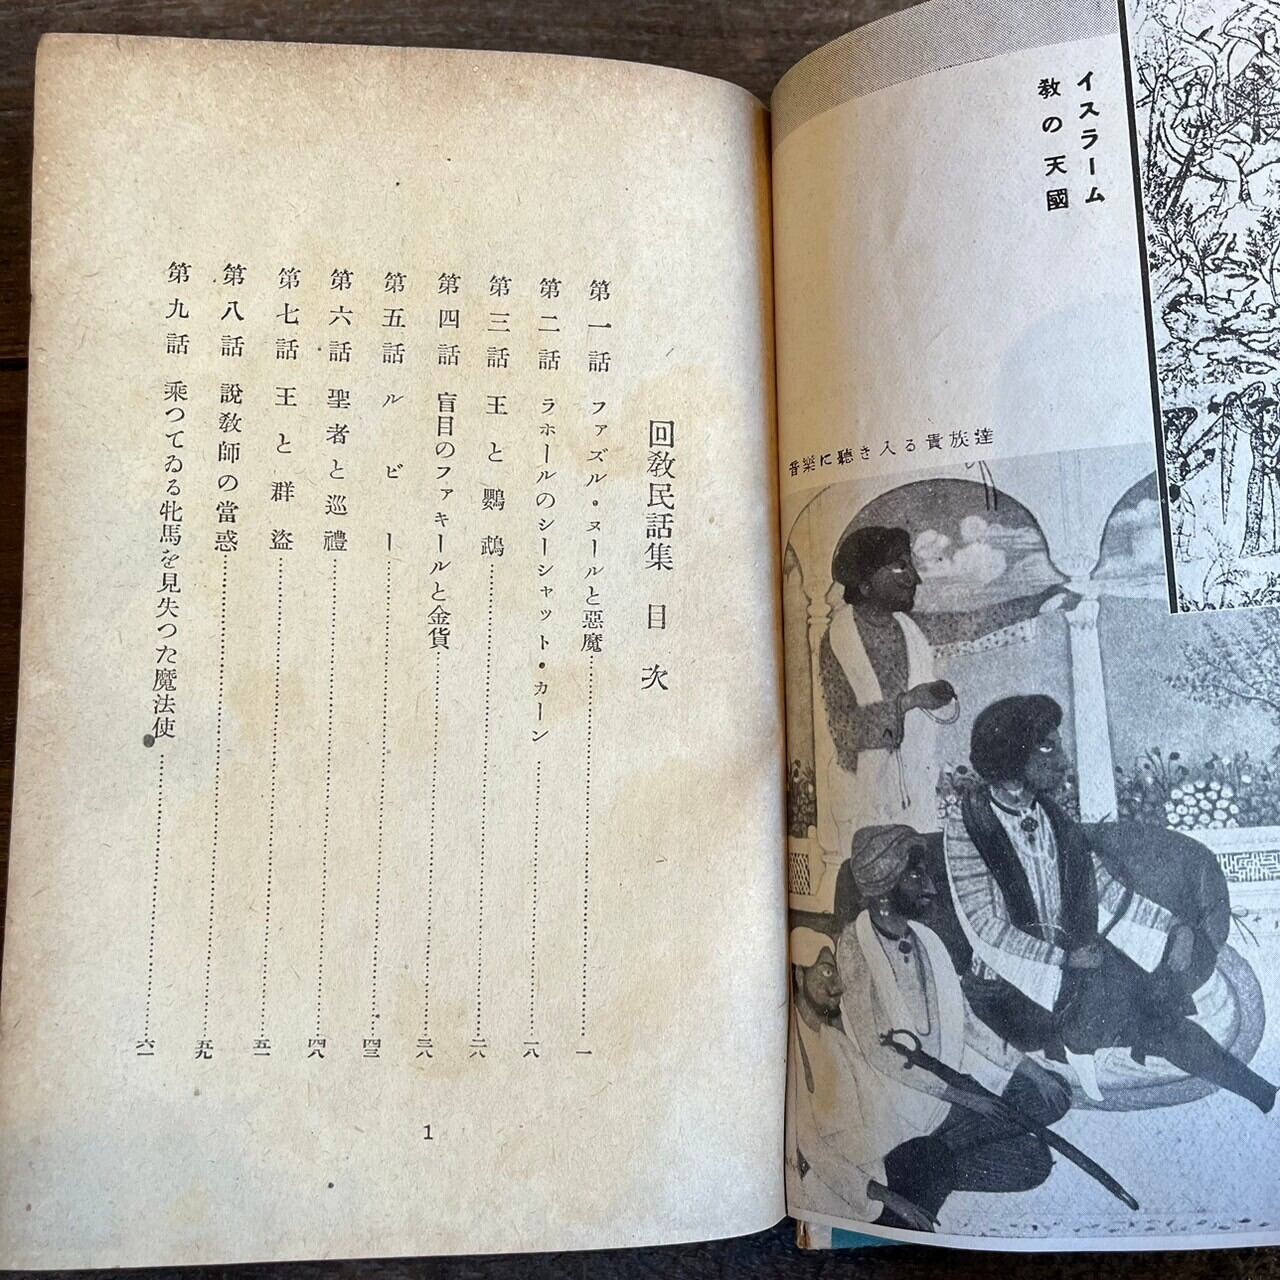 イスラーム
教の天國
音樂に聽き入る貴族達
回敎民話集 目次
第一話 ファズル・ヌールと惡魔……一
第二話 ラホールのシーシャット・カーン……一八
第三話 王と鸚鵡……二八
第四話 盲目のファキールと金貨……三八
第五話 ルビー……四三
第六話 聖者と巡禮……四八
第七話 王と群盜……五一
第八話 說敎師の當惑……五九
第九話 乘つてゐる牝馬を見失つた魔法使……六一
1